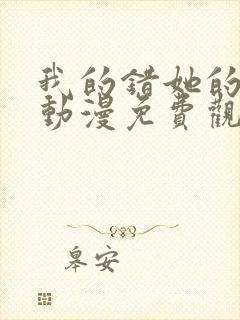 我的错她的
動漫免費觀
皋安